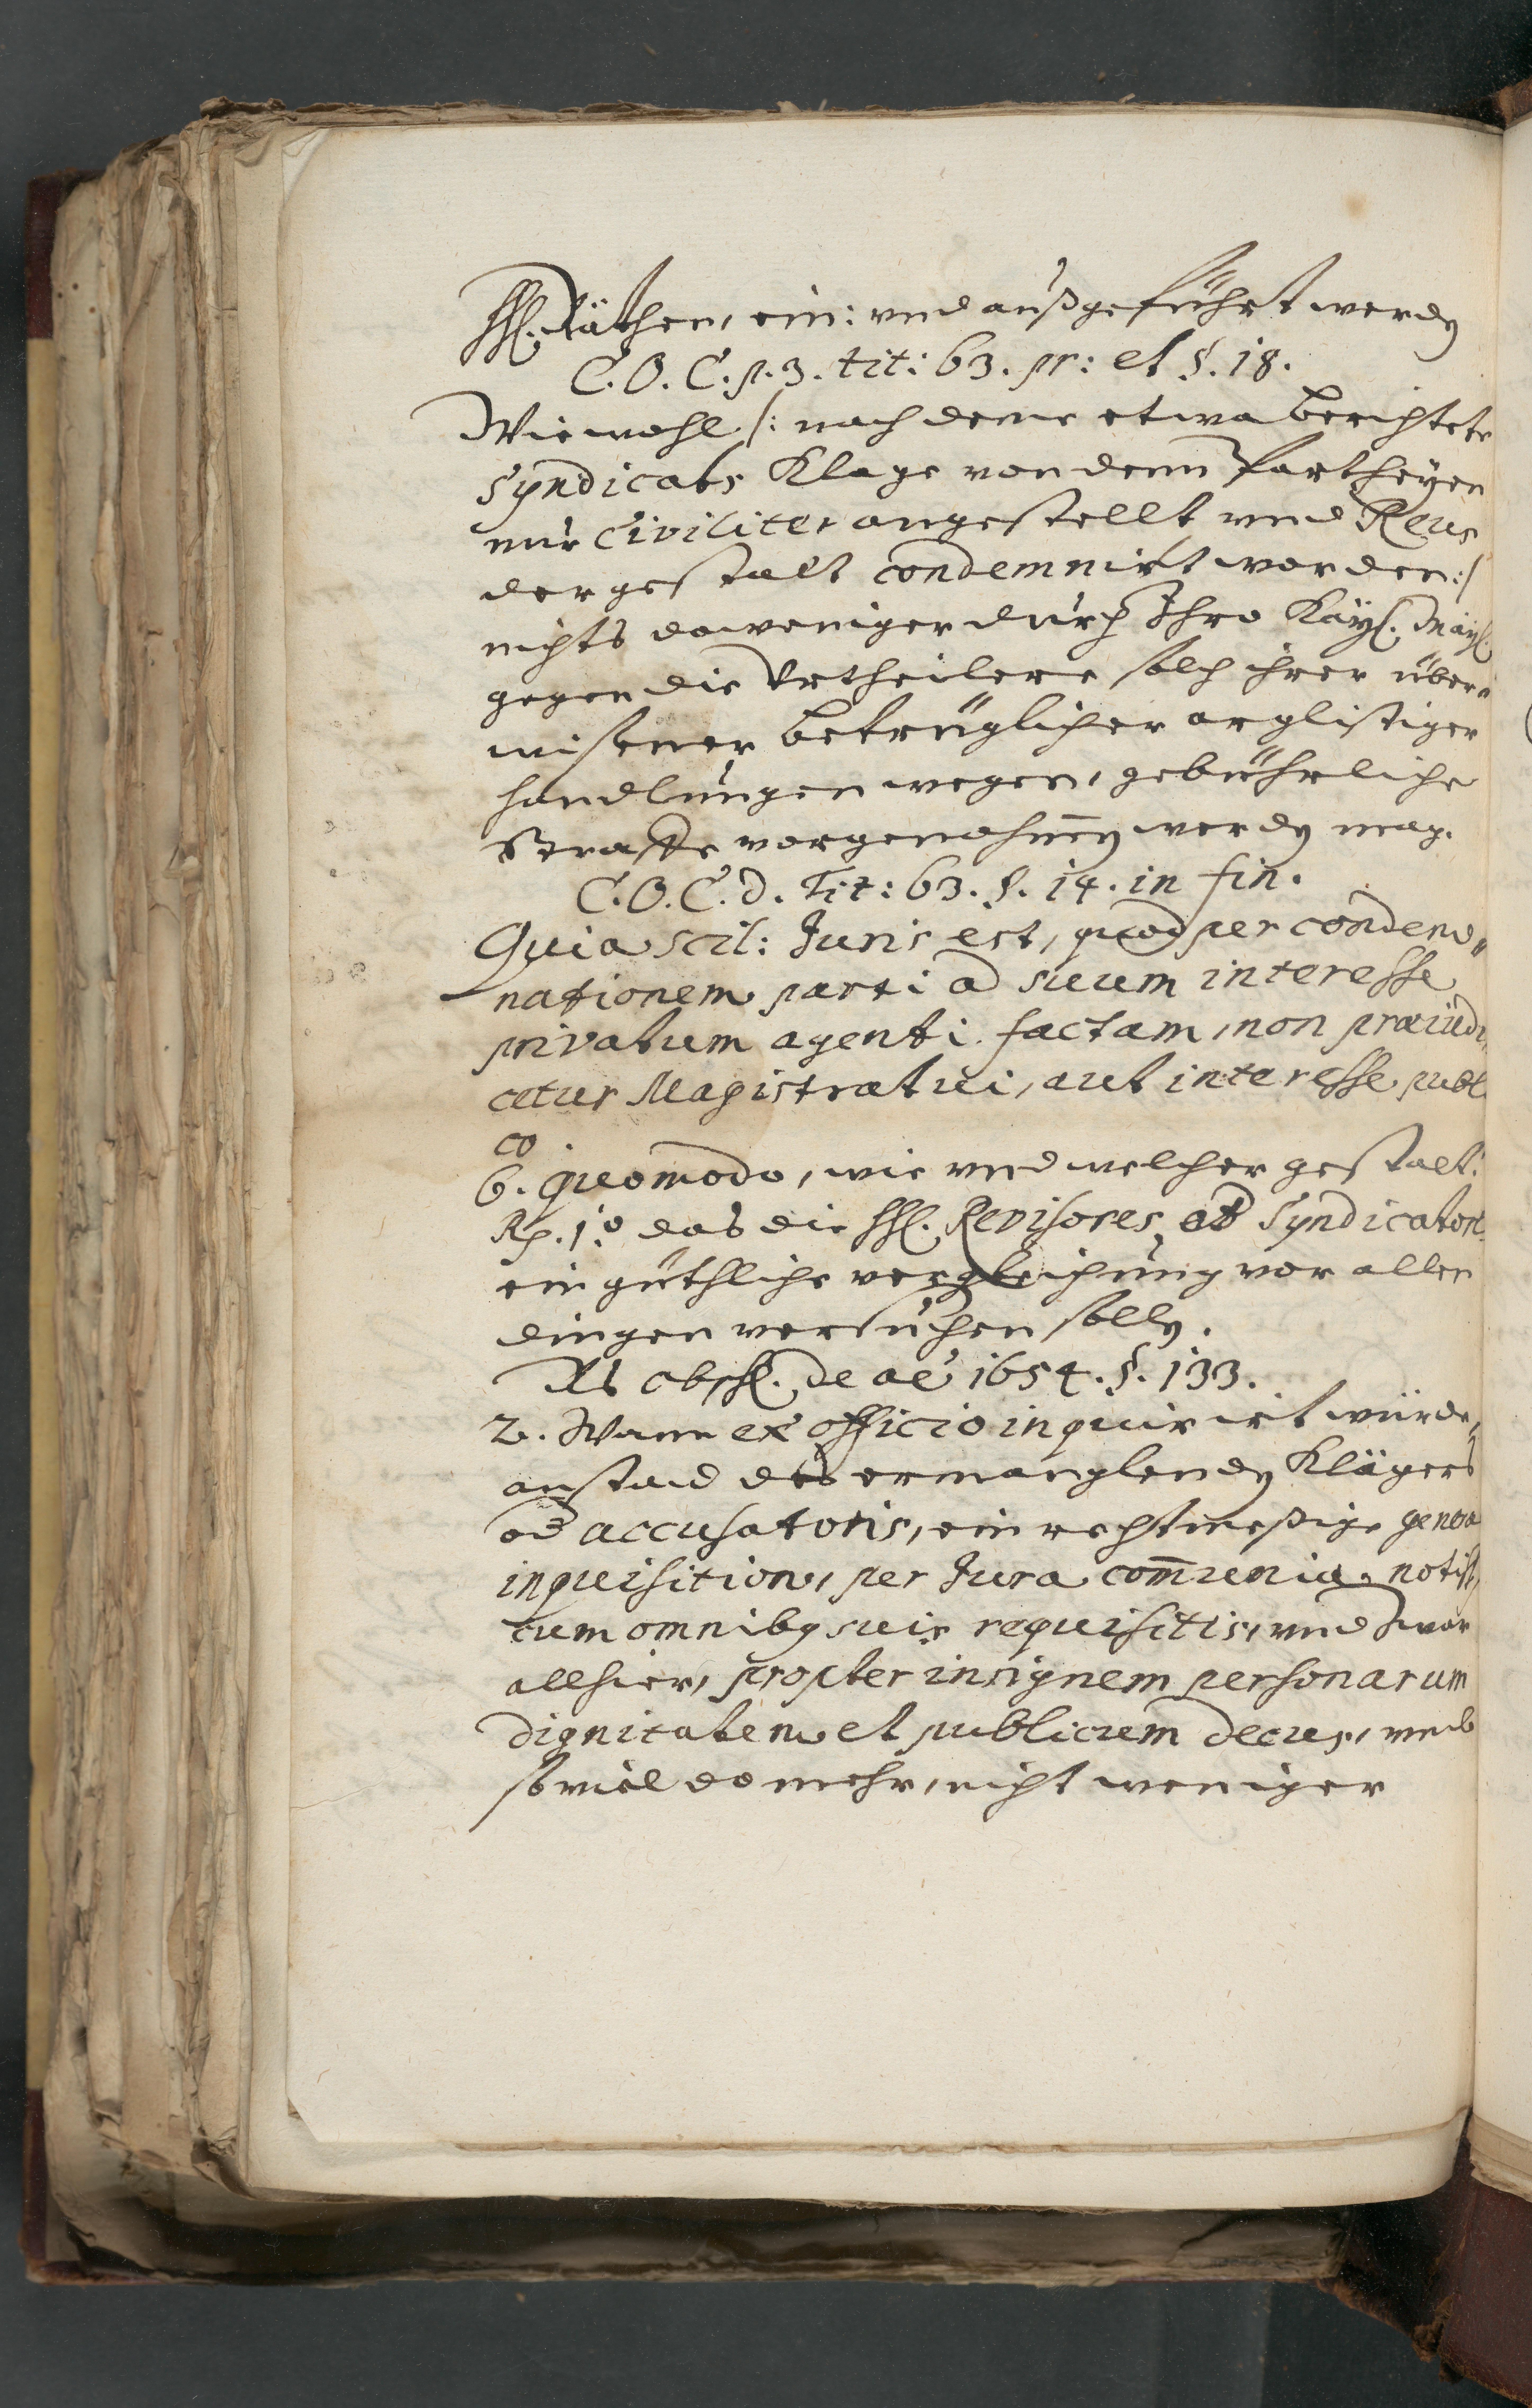 HH. Räthen, ein: vnd außgeführt werdẽ
C. O. C. p. 3. tit: 63. pr: et §. 18.
Wiewohl /: nach deme etwa berichtete
Syndicats Klage von denn Partheyen
nur Civiliter angestellt vnd Reus
dergestalt condemnirt worden :/
nichts daweniger durch Ihro Kayl. Mayl.
gegen die Vrtheilere solch ihrer über„
wisener betrüglicher arglistiger
handlungen wegen, gebührliche
Straffe vorgenohmen werdẽ mag.
C. O. C. d. Tit: 63. §. 14. in fin.
Quia scil: Juris est, quod per condem„
nationem parti ad suum interesse
privatum agenti factam, non præiudi„
cetur Magistratui, aut interesse publi
co.
6. quomodo, wie vnd welcher gestalt:
Rp. 1.o das die HH. Revisores od Syndicatores
ein güthliche vergleichung vor allen
dingen versuchen sollẽ.
Rs absch. de ao 1654. §. 133.
2. Wann ex officio inquirirt würde,
anstad des ermanglendẽ Klägers
od accusatoris, ein rechtmeßige genera
inquisition, per Jura com̃unia notist,
cum omnibq suis requisitis, vnd zwar
allhier, propter insignem personarum
dignitatem et publicum decus, vmb
so viel do mehr, nicht weniger